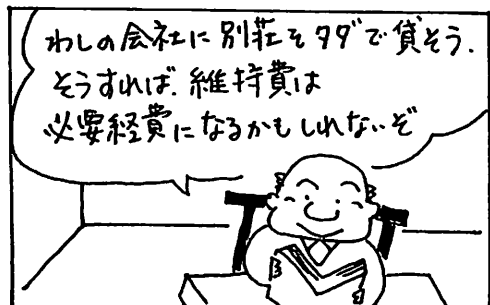 わしの会社に別荘をタダで貸そう.
そうすれば.維持費は
必要経費になるかもしれないぞ